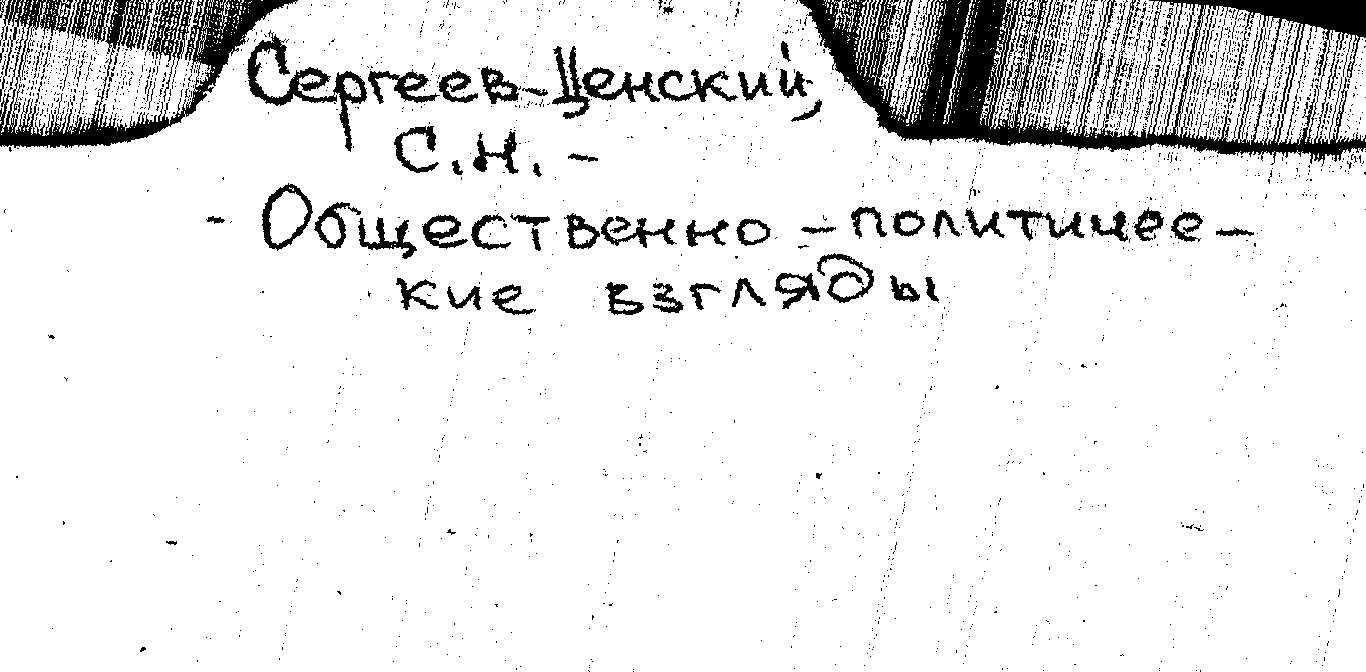 Сергеев-Ценский,
С.Н. –
- Общественно-политичес-
кие взгляды